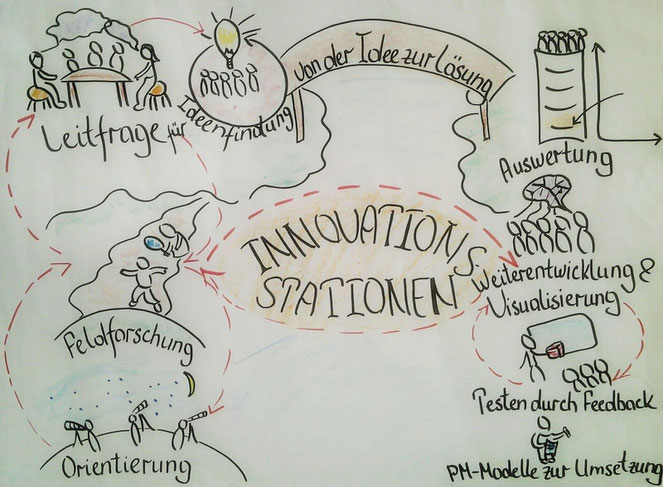 Leitfrage für
Ideenfindung
von der Idee zur Lösung
Auswertung
INNOVATIONS-
STATIONEN
Weiterentwicklung &
Visualisierung
Feldforschung
Testen durch Feedback
Orientierung
PM-Modelle zur Umsetzung